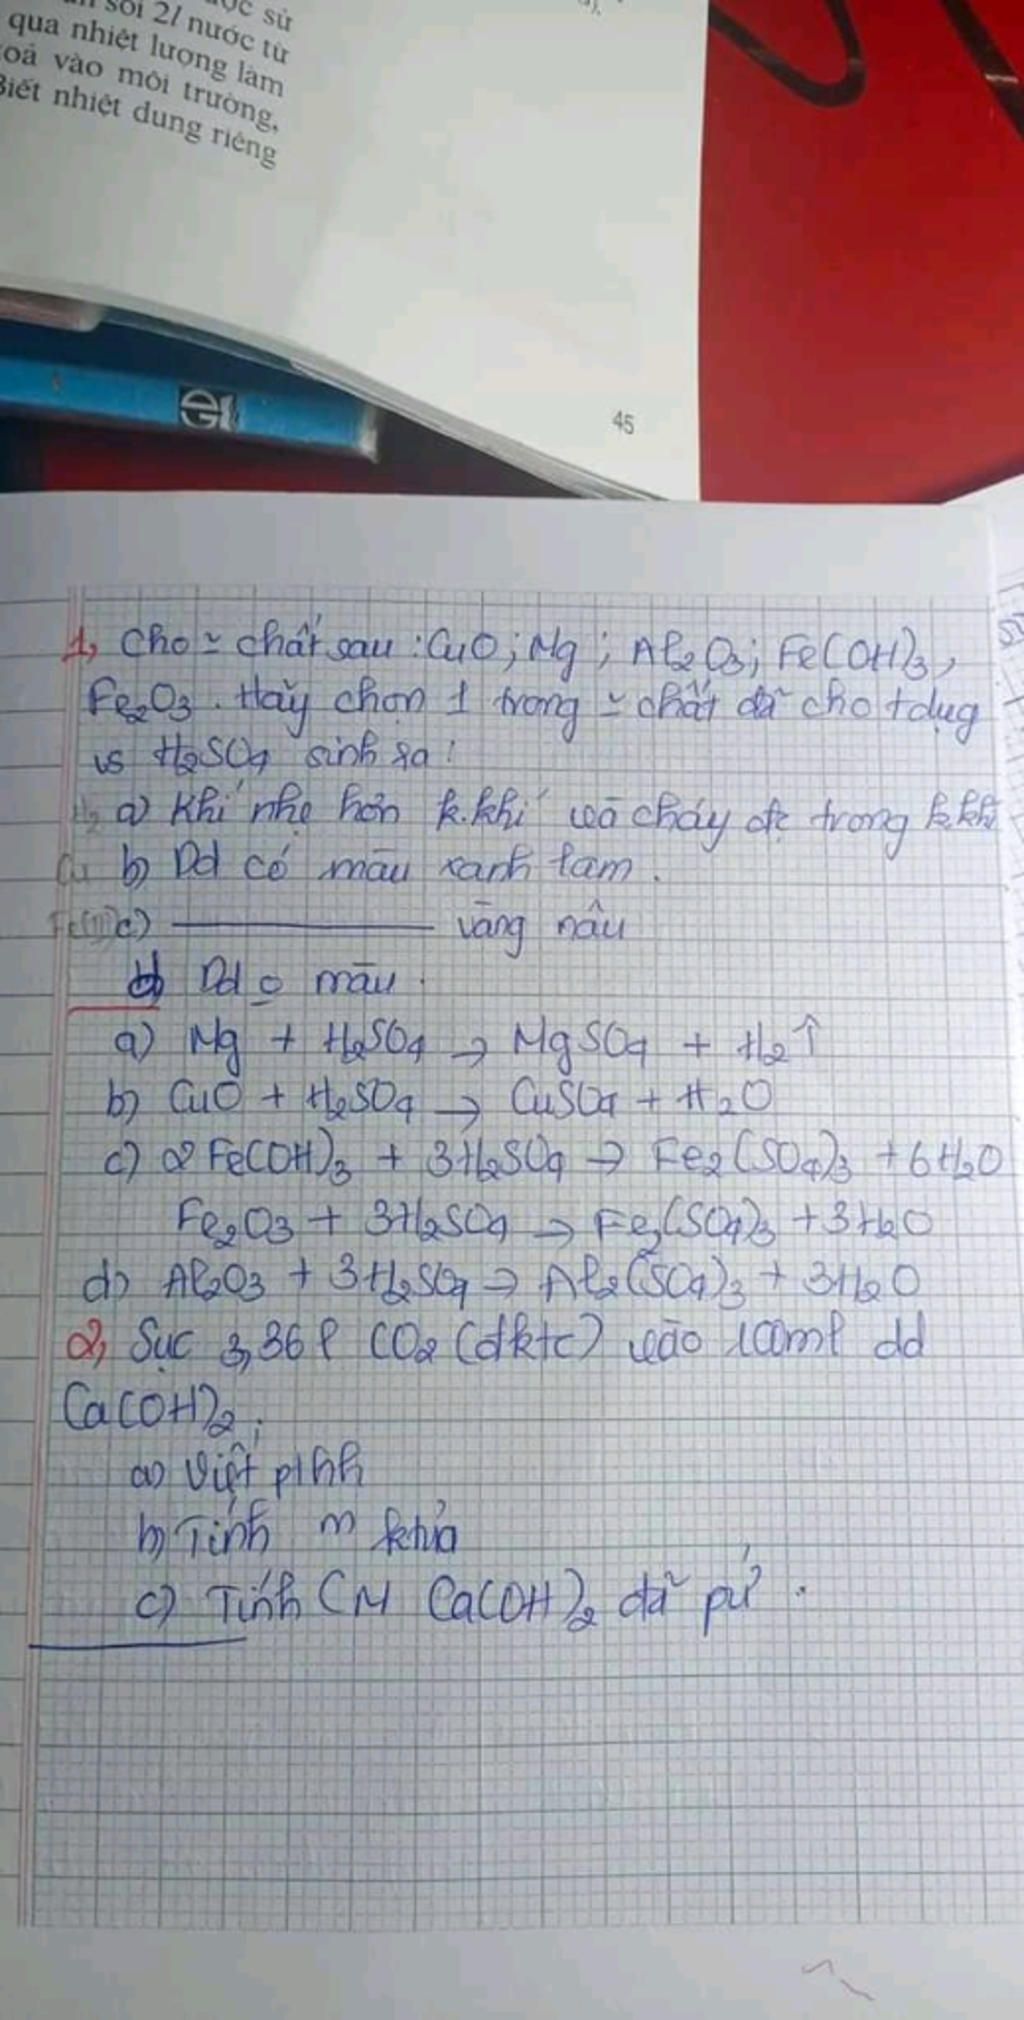 sôi 2l nước từ
qua nhiệt lượng làm
oả vào môi trường,
Biết nhiệt dung riêng
45
1, Cho ~ chất sau : CuO ; Mg ; Al₂O₃ ; Fe(OH)₃,
Fe₂O₃. Hãy chọn 1 trong ~ chất đã cho t dụg
vs H₂SO₄ sinh ra :
H₂ a) Khí nhẹ hơn k.khí và cháy đc trong k.khí
Cu b) Dd có màu xanh lam.
Fe(III) c) ———— vàng nâu
d) Dd o màu.
a) Mg + H₂SO₄ → MgSO₄ + H₂↑
b) CuO + H₂SO₄ → CuSO₄ + H₂O
c) 2Fe(OH)₃ + 3H₂SO₄ → Fe₂(SO₄)₃ + 6H₂O
Fe₂O₃ + 3H₂SO₄ → Fe₂(SO₄)₃ + 3H₂O
d) Al₂O₃ + 3H₂SO₄ → Al₂(SO₄)₃ + 3H₂O
2, Sục 3,36l CO₂ (đktc) vào 100ml dd
Ca(OH)₂.
a) Viết pthh
b) Tính m ktủa
c) Tính CM Ca(OH)₂ đã pứ.